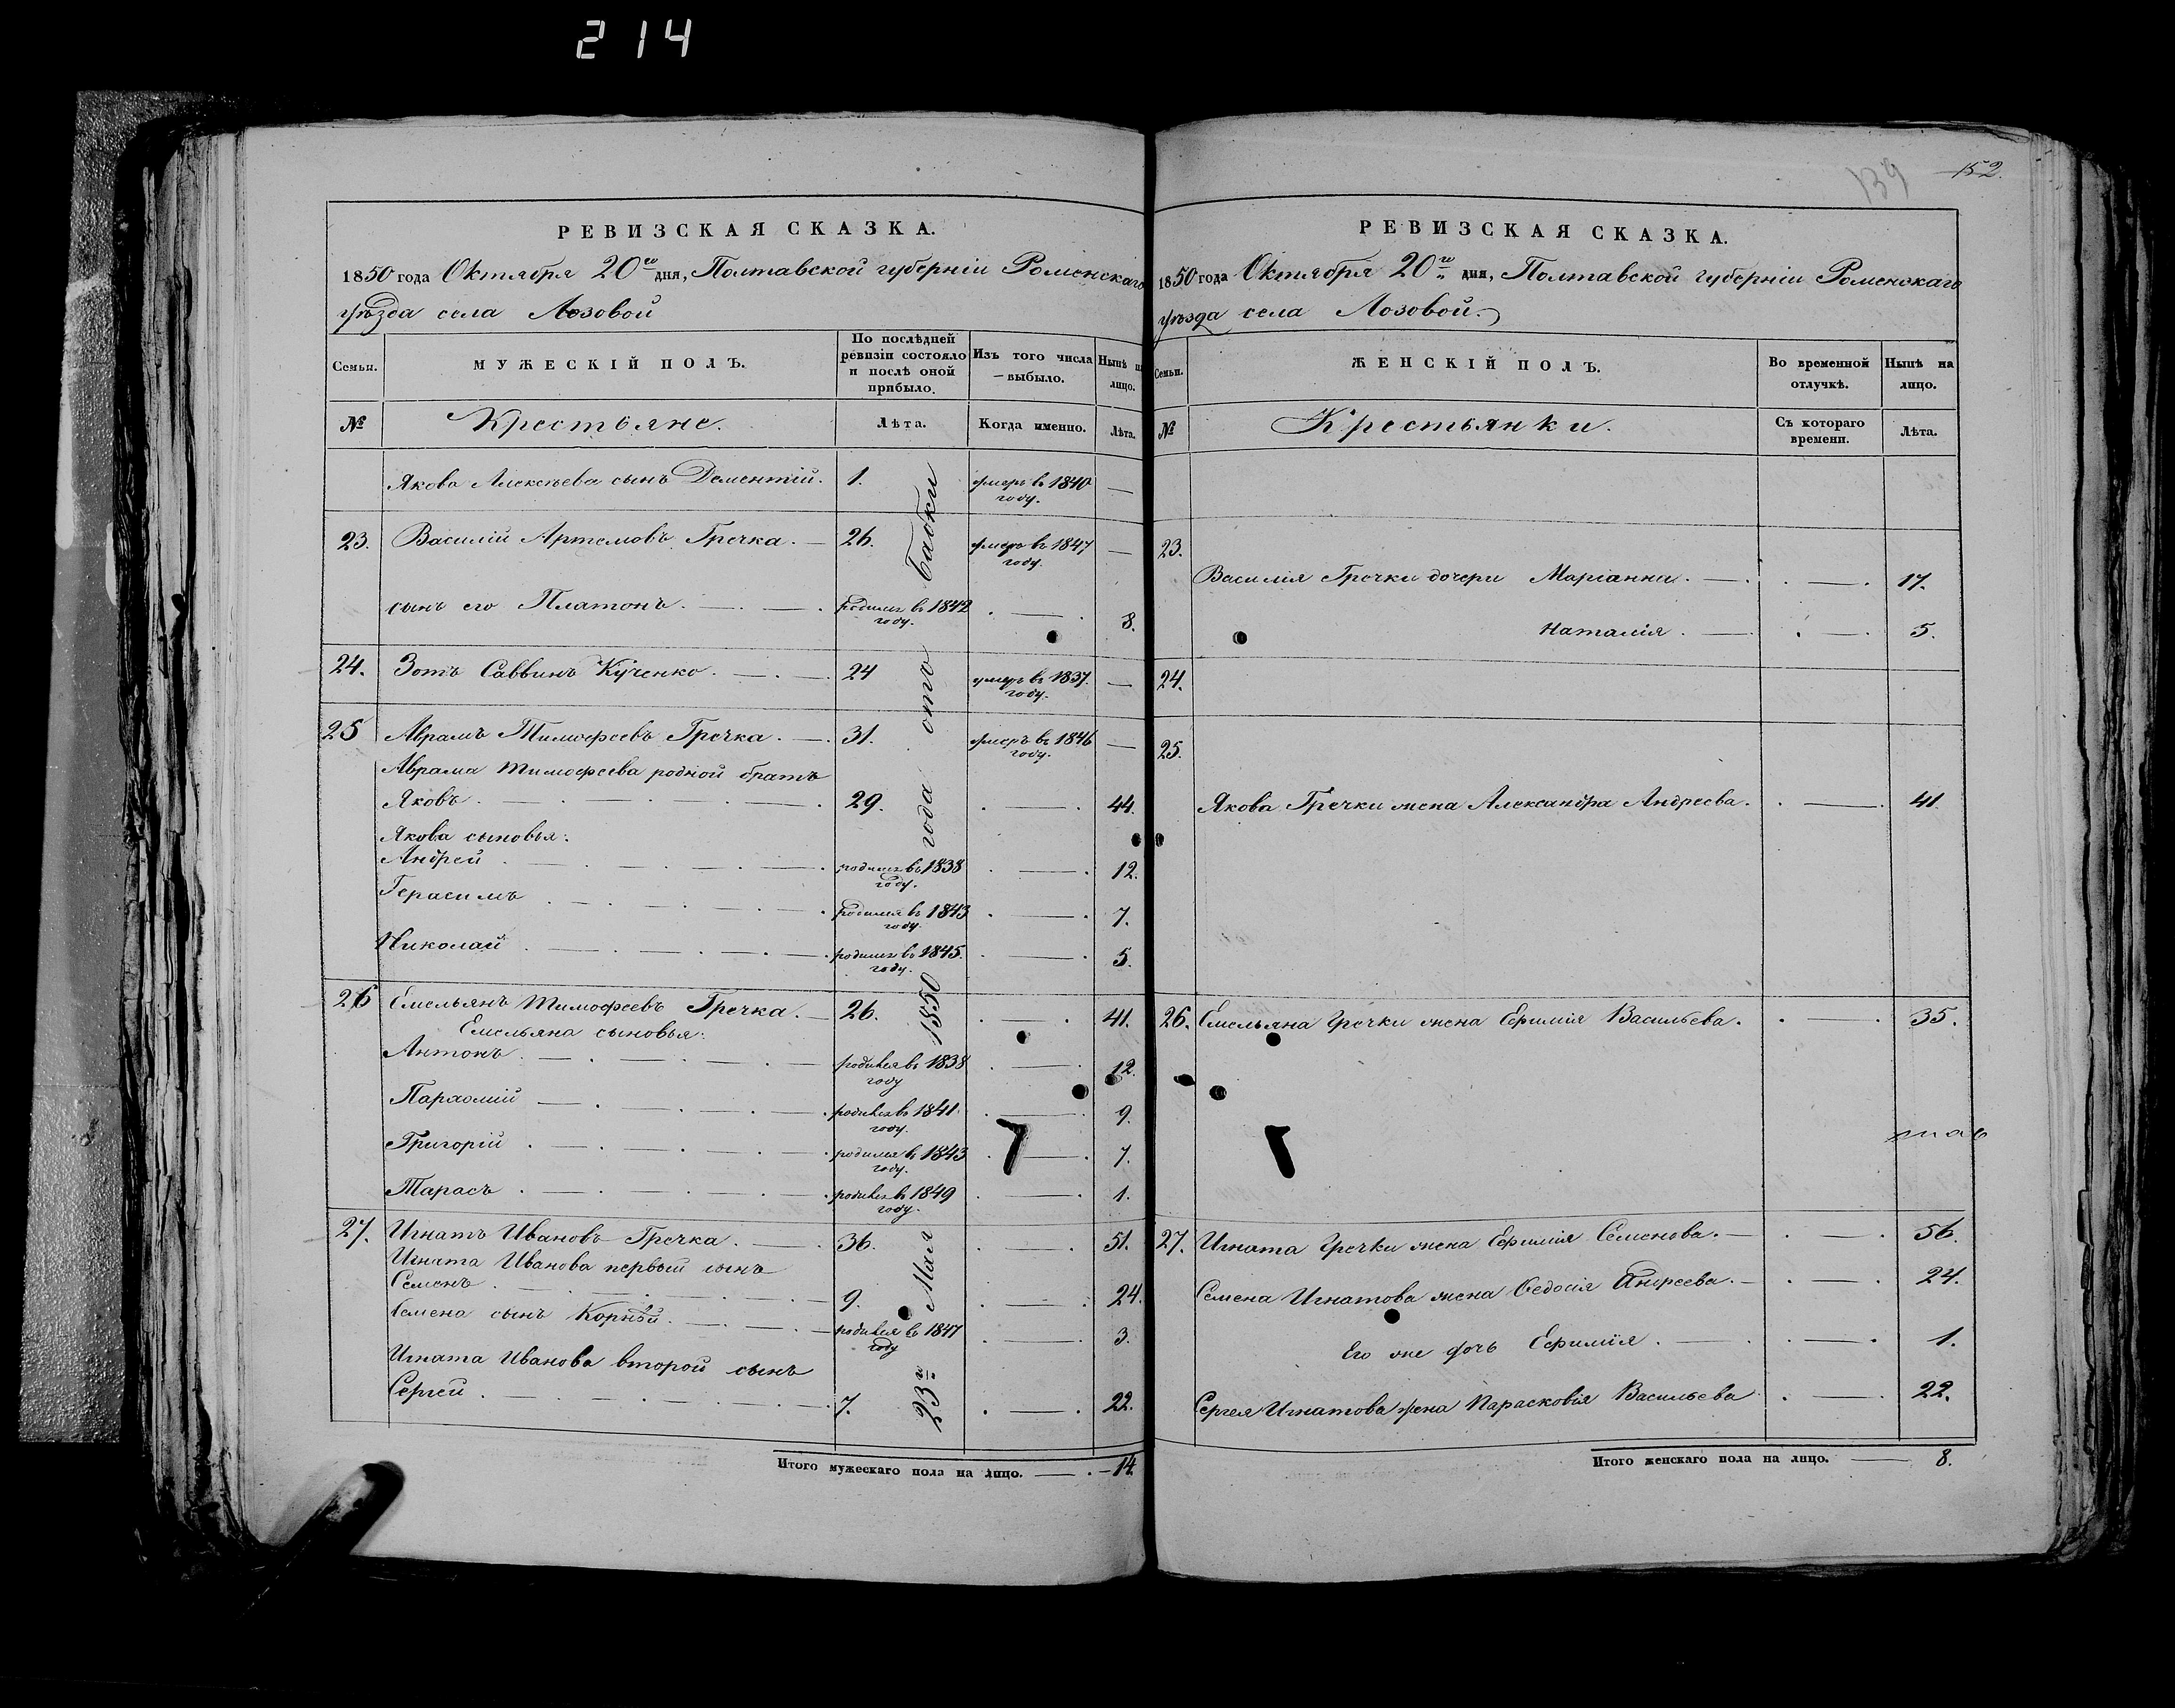 214
139
152.
РЕВИЗСКАЯ СКАЗКА.
1850 года Октября 20го дня, Полтавской губерніи Роменскаго
уѣзда села Лозовой
Семьи.
МУЖЕСКІЙ ПОЛЪ.
По послѣдней ревизіи состояло и послѣ оной прибыло.
Изъ того числа выбыло.
Нынѣ на лицо.
№
Крестьяне.
Лѣта.
Когда именно.
Лѣта.
Якова Алексѣева сынъ Дементій. 1. умеръ въ 1840 году. —
23. Василій Артемовъ Гречка. — 26. умеръ въ 1847 году. —
сынъ его Платонъ. — родился въ 1842 году. — 8.
24. Зотъ Саввинъ Кученко. — 24 умеръ въ 1837. году. —
25 Аврамъ Тимофеевъ Гречка. — 31. умеръ въ 1846 году. —
Аврама Тимофеева родной братъ
Яковъ. — 29. — 44.
Якова сыновья:
Андрей — родился въ 1838 году. — 12.
Герасимъ — родился въ 1843 году. — 7.
Николай — родился въ 1845. году. — 5.
26 Емельянъ Тимофеевъ Гречка. — 26. — 41.
Емельяна сыновья:
Антонъ. — родился въ 1838 году — 12.
Пархомій — родился въ 1841. году. — 9.
Григорій — родился въ 1843 году. — 7.
Тарасъ — родился въ 1849 году. — 1.
27. Игнатъ Ивановъ Гречка. — 36. — 51.
Игната Иванова первый сынъ
Семенъ. — 9. — 24.
Семена сынъ Корнѣй. — родился въ 1847 году — 3.
Игната Иванова второй сынъ
Сергей. — 7. — 22.
Итого мужескаго пола на лицо. — 14.
23го Мая 1850 года отъ Бабки
РЕВИЗСКАЯ СКАЗКА.
1850 года Октября 20го дня, Полтавской губерніи Роменскаго
уѣзда села Лозовой.
Семьи.
ЖЕНСКІЙ ПОЛЪ.
Во временной отлучкѣ.
Нынѣ на лицо.
№
Крестьянки.
Съ котораго времени.
Лѣта.
23.
Василія Гречки дочери Маріанна. — 17.
Наталія. — 5.
24.
25.
Якова Гречки жена Александра Андреева. — 41.
26. Емельяна Гречки жена Ефимія Васильева. — 35.
27. Игната Гречки жена Ефимія Семенова. — 56.
Семена Игнатова жена Федосія Андреева. — 24.
Его же дочь Ефимія. — 1.
Сергея Игнатова жена Парасковія Васильева — 22.
Итого женскаго пола на лицо. — 8.